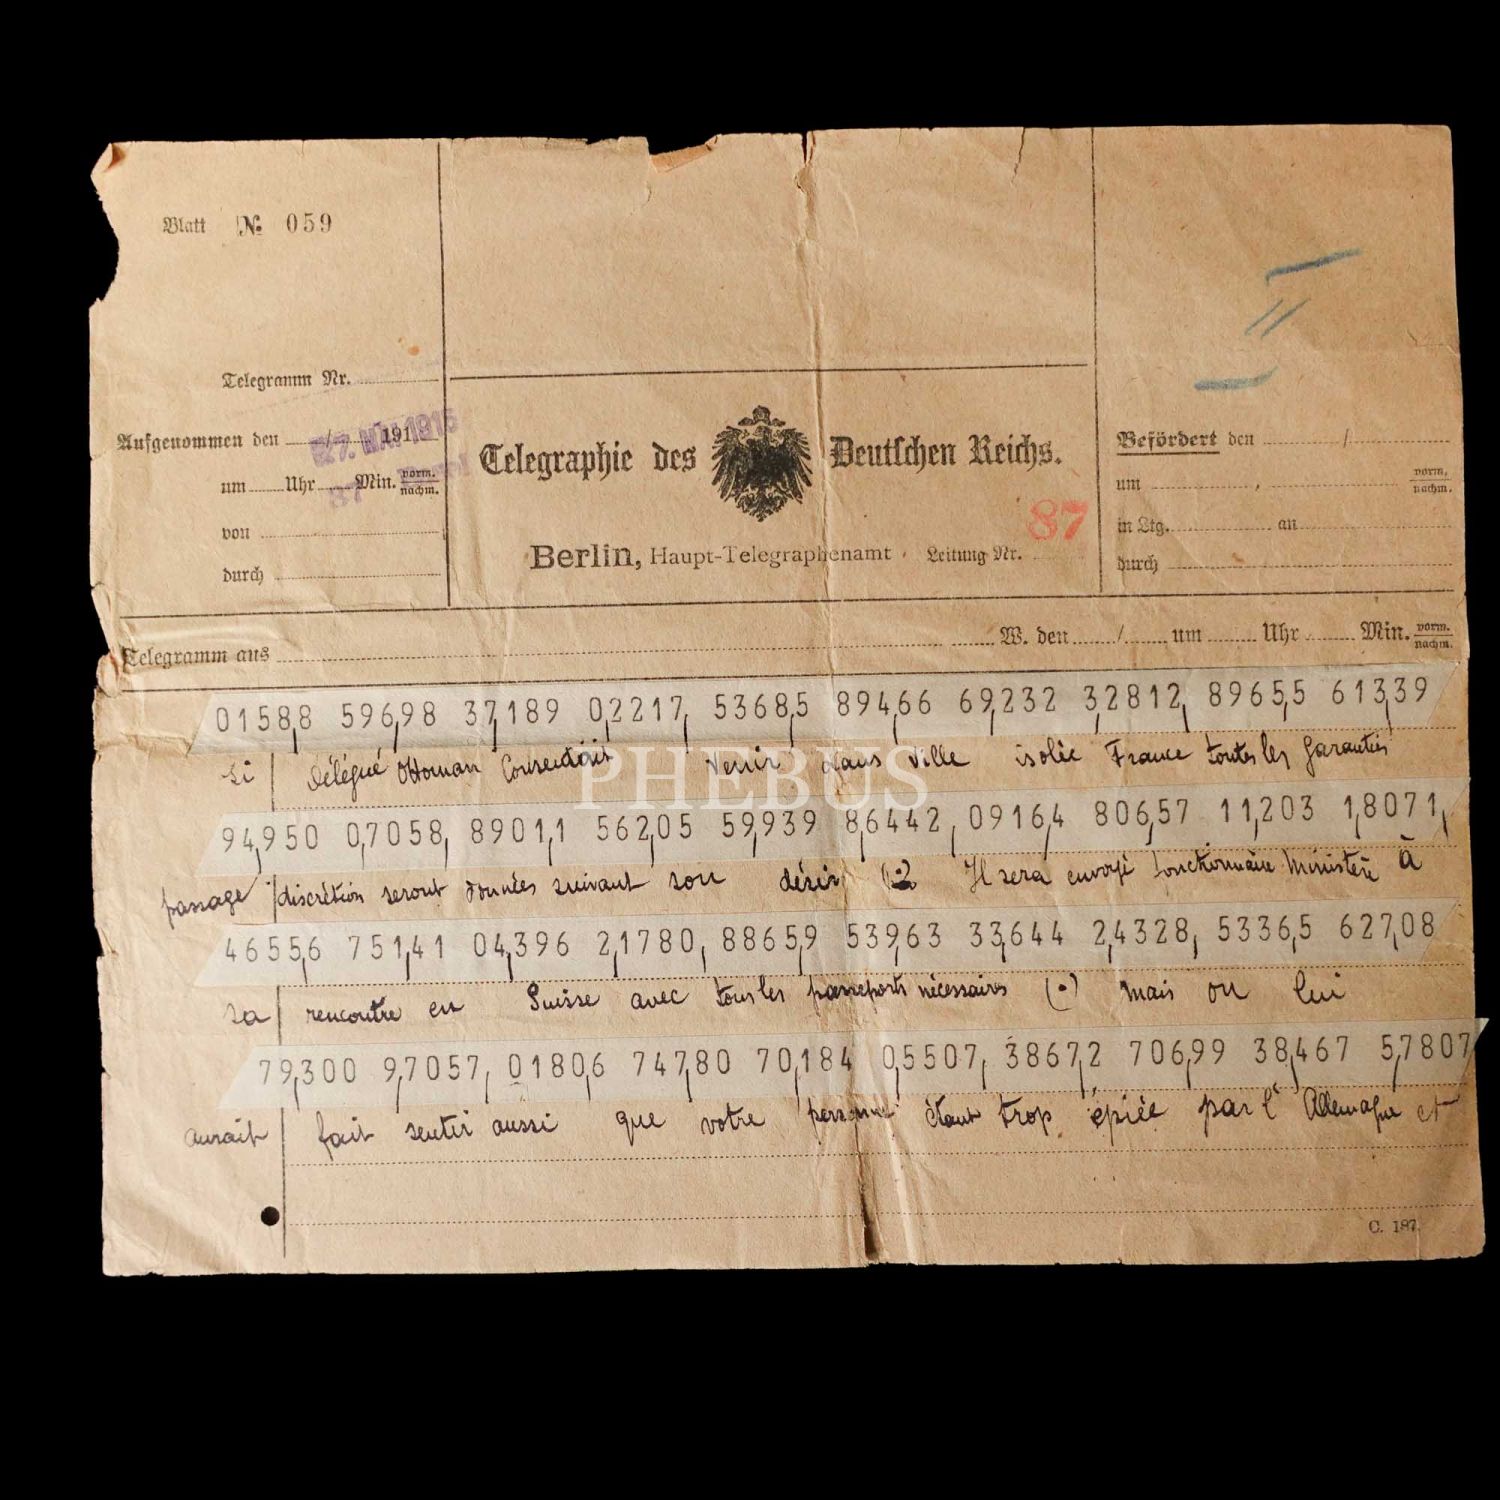 Blatt № 059
Telegramm Nr.
Aufgenommen den 27. MAI 1915 191
um Uhr Min. vorm. nachm.
von
durch
Telegraphie des Deutschen Reichs.
Berlin, Haupt-Telegraphenamt Leitung Nr. 87
Befördert den /
um , vorm. nachm.
in Ltg. an
durch
Telegramm aus W. den / um Uhr Min. vorm. nachm.
0158,8 596,98 37,189 0,2217, 5368,5 894,66 69,232 3,2812, 8965,5 613,39
Si Délégué Ottoman Consendait Venir dans Ville isolée France toutes les garanties
PHEBUS
94,950 0,7058, 8901,1 562,05 59,939 8,6442, 0916,4 806,57 11,203 1,8071,
passage discrétion seront données suivant son désir (.) Il sera envoyé fonctionnaire Ministère à
4655,6 751,41 04,396 2,1780, 8865,9 539,63 33,644 2,4328, 5336,5 627,08
sa rencontre en Suisse avec tous les passeports nécessaires (.) Mais on lui
79,300 9,7057, 0180,6 747,80 70,184 0,5507, 3867,2 706,99 38,467 5,7807,
aurait fait sentir aussi que votre personne étant trop épiée par l' Allemagne et
C. 187.